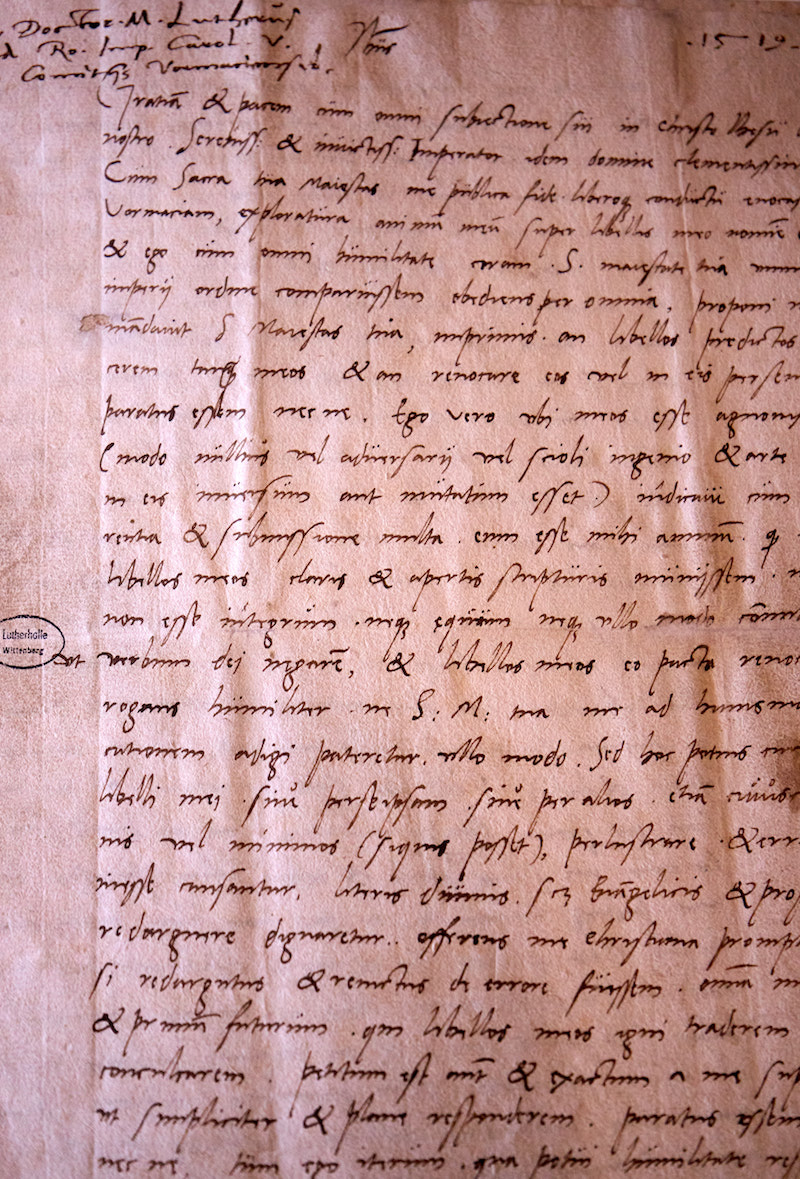 Doctor. M. Lutherus
Ro. Imp. Carol. V.
Comitijs Vormaciensib.
Jhs
.1519.
Gratiã & pacem cùm omni subiectione sui in Christo Ihesu
nostro. Sereniss: & inuictiss: Imperator idem domine clementissim
Cùm Sacra tua Maiestas me publica fide liberoq conductu euoca
Vormaciam, exploratùra animũ meũ super libellis meo nomine
& ego cùm omni hùmilitate coram .S. maiestate tua
imperij ordine comparùissem obediens per omnia, proponi
mãdauit S Maiestas tua, imprimis. an libellos predictos
cerem tanq meos & an reuocare eos uel in eis perseu
paratus essem nec ne. Ego vero ubi meos esse agnoui
(modo nùllius uel adùersarij uel scioli ingenio & arte
in eis inùersùm aut mùtatùm esset) iùdicaui cùm
rẽtia & sùbmissione multa. eum esse mihi animũ. q
libellos meos claris & apertis scriptùris mùnijssem.
non esse iùtegrùm. neq equùm neq ullo modo cõmi
ut
verbum dei negarẽ, & libellos meos eo pacto reuo
rogans hùmiliter. ne S: M: tua me ad hanc
cationem adigi pateretur. ullo modo. Sed hoc potius
libelli mei. siue per seipsam. siue per alios. etiã cuiusc
nis uel mìnimos (siquis posset), perlustrare. & err
inesse causantur, literis diùinis. scz Euãgelicis & prop
redarguere dignaretur.. offerens me Christiana prompt
si redargutus & reuictus de errore fùissem. omnia
& primũ futurùm. qui libellos meos igni traderem
conculcarem. petitum est aut & exactum a me sup
ut simpliciter & plane responderem. paratus essem
nec ne. tùm ego iterùm. qua potui hùmilitate res
Lutherhalle
Wittenberg